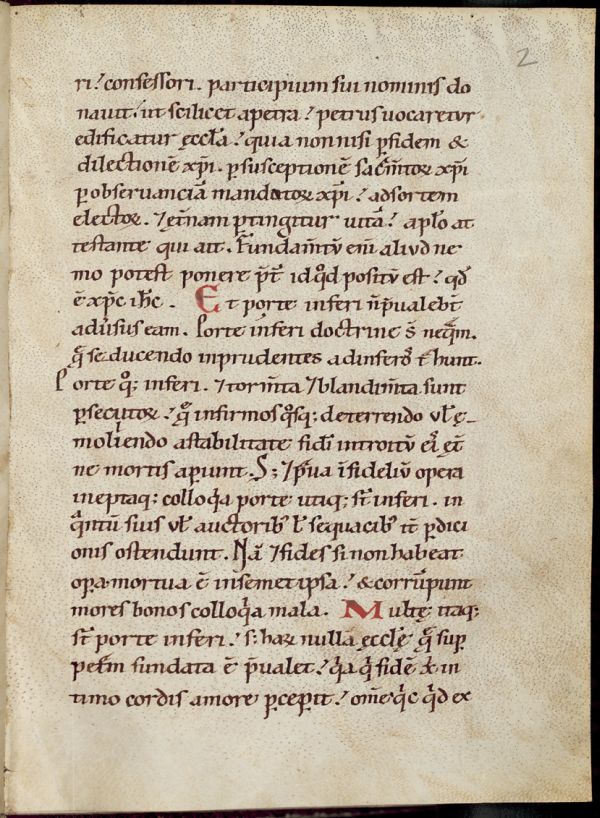 2
ri! confessori. participium sui nominis do
nauit! ut scilicet apetra! petrus uocaretur
edificatur ęccła! quia nonnisi p̱fidem &
dilectionē xp̄i. p̱susceptionē sac̄m̄toꝝ xp̄i
p̱obseruanciā mandatoꝝ xp̄i! adsortem
electoꝝ. ⁊ ęt̄nam p̱tingitur uitā! apło at
testante qui ait. Fundam̄tū eni aliud ne
mo potest ponere p̄t̄ id qd̄ positū est! qd̄
ē xp̄c ih̄c. Et porte inferi n̄ p̄ualebt̄
aduisus eam. Porte inferi doctrine s̄ neq̄m.
q̄ seducendo inprudentes adinferos t̄hunt.
Porte q; inferi. ⁊ torm̄ta ⁊ blandim̄ta sunt
p̱secutoꝝ! q̄ infirmos qosq; deterrendo uł ę
moliendo astabilitate fidi introitū ei ęt̄
ne mortis apiunt. S; ⁊ p̄ua īfideliū opera
ineptaq; colloqa porte utiq; s̄t inferi. in
qntū suis uł auctorib; ł sequacib; it̄ p̱dici
onis ostendunt. Nā ⁊ fides si non habeat
opa mortua ē insemetipsa! & corrūpunt
mores bonos colloqa mala. Multę itaq;
s̄t porte inferi! s; haꝝ nulla ęcclę q̄ sup̱
pet̄m fundata ē p̄ualet! qa qi fidē x̄i in
timo cordis amore p̱cepit! om̄e qic qid ex